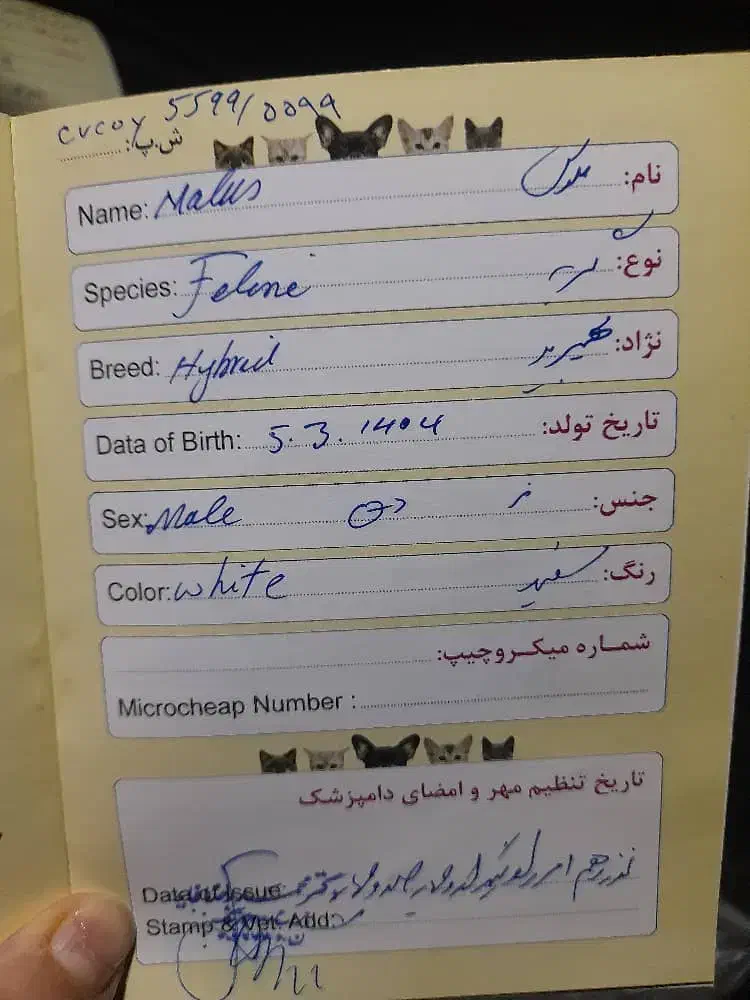 5599/0099
ش.پ:
Name: Malus ملوس نام:
Species: Feline گربه نوع:
Breed: Hybrid هیبرید نژاد:
Data of Birth: 5.3.1404 تاریخ تولد:
Sex: Male ♂ نر جنس:
Color: white سفید رنگ:
شماره میکروچیپ:
Microcheap Number :
تاریخ تنظیم مهر و امضای دامپزشک
Data of Issue:
Stamp & Vet. Add: